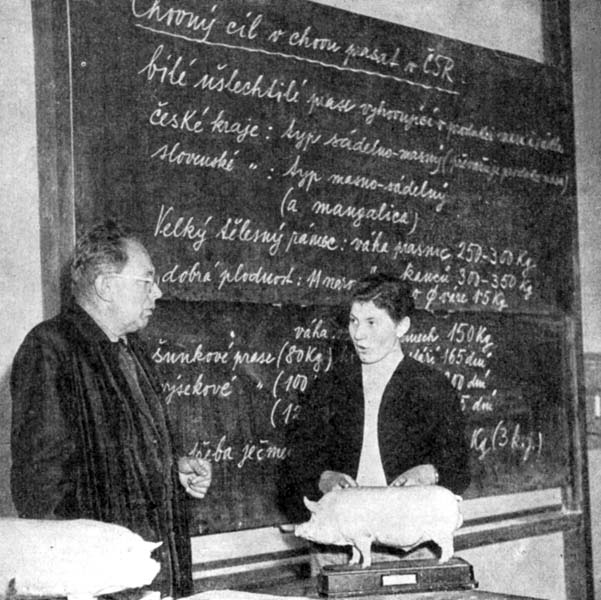 Chovný cíl v chovu prasat v ČSR.
bílé ušlechtilé prase vyhovující v produkci masa i sádla
české kraje: typ sádelno-masný
slovenské " : typ masno-sádelný
(a mangalica)
Velký tělesný rámec: váha prasnic 250-300 Kg
kanců 300-350 kg
dobrá plodnost: 11 15 Kg
váha 150 Kg
šunkové prase (80 Kg) 165 dní
výsekové " (100 dní
(12 5 dní
ječme Kg (3 k.j.)